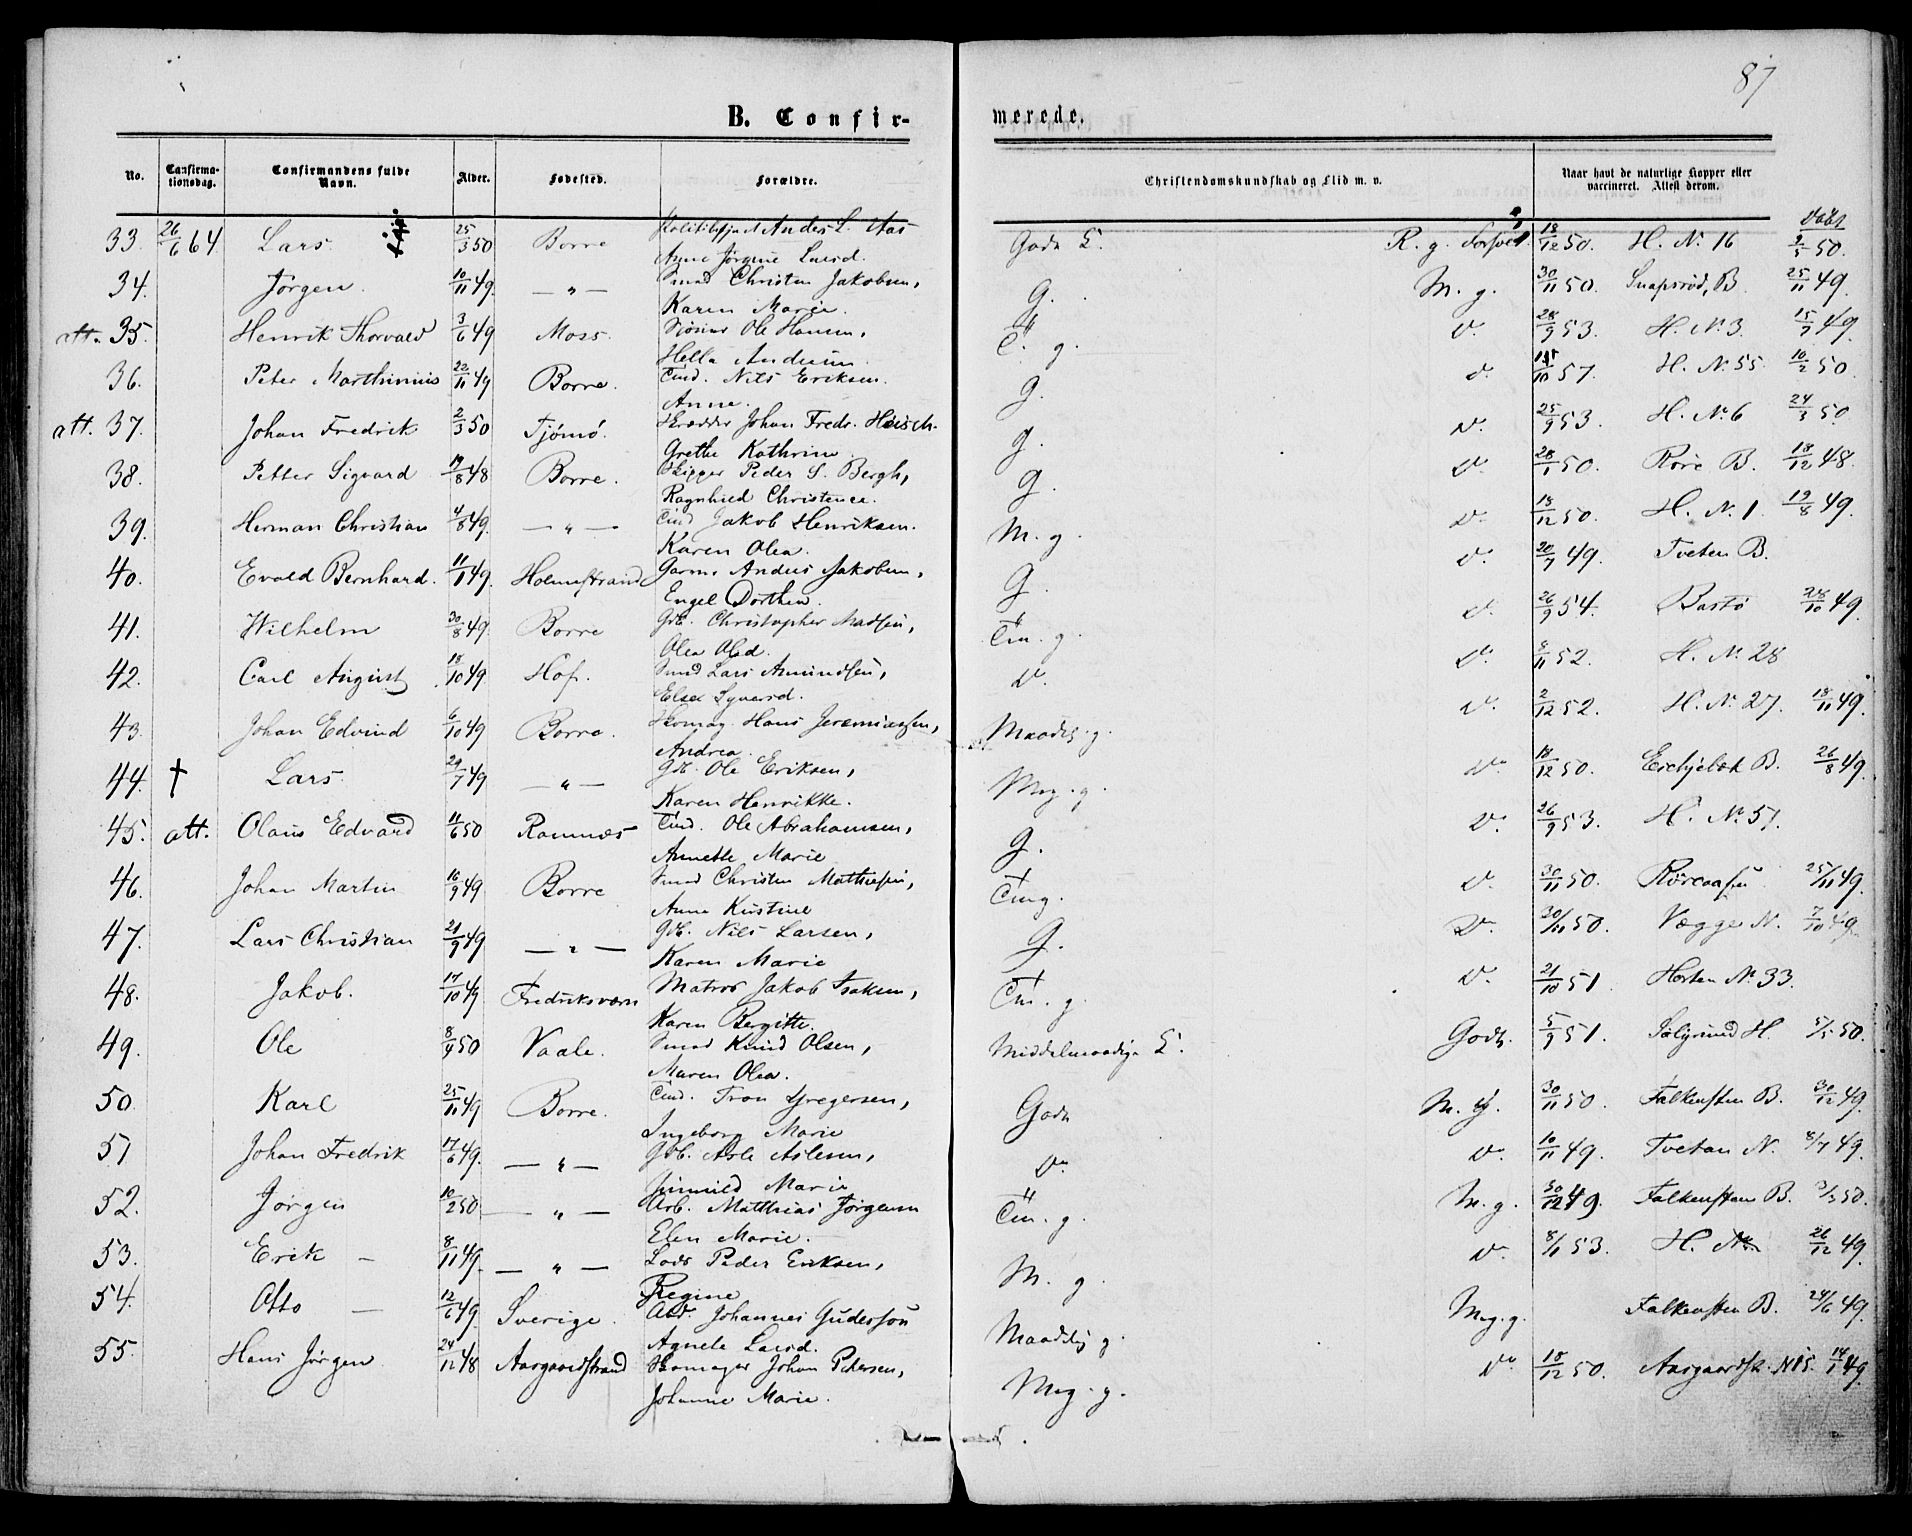 87
B. Confir-
merede.
No.
Confirma-
tionsdag.
Confirmandens fulde
Navn.
Alder.
Fødested.
Forældre.
Christendomskundskab og Flid m. v.
Naar havt de naturlige Kopper eller
vaccineret. Attest derom.
33. 26/6 64 Lars 25/3 50 Borre Anders L. Aas R. g. 18/12 50. H. N. 16 50.
Anne Jørgine Larsd.
34. Jørgen 10/11 49. — „ — Smed Christen Jakobsen, G. M. g. 30/11 50. Snapsrød, B. 25/11 49.
Karen Marie
att. 35. Henrik Thorvald 3/6 49 Moss. Ole Hansen, g. D. 28/9 53. H. N. 3. 15/7 49.
Hella
36. Peter Marthinius 22/11 49 Borre. Tind. Nils Eriksen. g. D. 57. H. N. 55. 10/2 50.
Anne.
att. 37. Johan Fredrik 2/3 50 Tjømø. Skrædder Johan Fredr. g. D. 25/9 53. H. N. 6 24/3 50.
Grethe Kathrine
38. Petter Sigvard 19/8 48 Borre. Skipper Peder S. Bergh, g. D. 28/1 50. Røre B. 18/12 48.
Ragnhild Christence.
39. Herman Christian 4/8 49. — „ — Tind Jakob Henriksen. M. g. D. 18/12 50. H. N. 1. 19/8 49.
Karen Olea.
40. Evald Bernhard. 11/1 49. Holmestrand Garver Anders Jakobsen, g. D. 20/7 49. Tveten B.
Engel Dorthea.
41. Wilhelm 30/8 49. Borre Gdb. Christopher Madsen, Tm. g. D. 26/9 54. Bastø 28/10 49.
Olea Olsd.
42. Carl August 18/10 49 Hof. Smed Lars Amundsen, D. D. 8/11 52. H. N. 28
Else Syversd.
43. Johan Edvind 6/10 49 Borre. Skomag. Hans Jeremiassen, Maadelig g. D. 2/12 52. H. N. 27. 18/11 49.
Andrea.
44. † Lars 29/7 49 — „ — Gdb. Ole Eriksen, Meg. g. D. 18/12 50. B. 26/8 49.
Karen Henrikke.
45. att. Olaus Edvard 11/6 50 Ramnæs Tind. Ole Abrahamsen, g. D. 26/9 53. H. N. 51.
Annette Marie
46. Johan Martin 16/9 49 Borre Smed Christen Mathiesen, Tm g. D. 30/11 50. Røreaasen 25/11 49.
Anne Kirstine
47. Lars Christian 21/9 49 — „ — Gdb. Nils Larsen, G. D. 30/11 50. Vægge N. 7/10 49.
Karen Marie
48. Jakob. 17/10 49 Fredriksværn Matros Jakob Isaksen, Tm. g. D. 21/10 51. Horten N. 33.
Karen Bergitte.
49. Ole 8/4 50 Vaale. Smed Knud Olsen, Middelmaadige Godt. 5/9 51. H. 5/5 50.
Maren Olea.
50 Karl 25/11 49 Borre. Tind. Tron Gregersen, Godt M. G. 30/11 50. Falkensten B. 30/12 49.
Ingeborg Marie
51 Johan Fredrik 17/6 49. — „ — Gdb. Asle Aslesen, D. D. 10/11 49. Tvetan N. 8/7 49.
Gunnild Marie
52. Jørgen 10/2 50 — „ — Arb. Matthias Jørgensen Tm. g. M. g. 30/12 49. Falkensten B. 3/3 50.
Elen Marie.
53. Erik — 8/11 49. — „ — Lods Peder Eriksen, M. g. D. 8/1 53. H. N. 26/12 49.
Regine
54. Otto — 12/6 49. Sverige. Arb. Johannes Guderson Maadelig g. Meg. g. Falkensten B. 24/6 49.
Agnete Larsd.
55. Hans Jørgen 24/12 48 Aasgaardstrand Skomager Johan Petersen, Meg. g. D. 18/12 50. Aasgaardst. N 15. 14/1 49.
Johanne Marie.